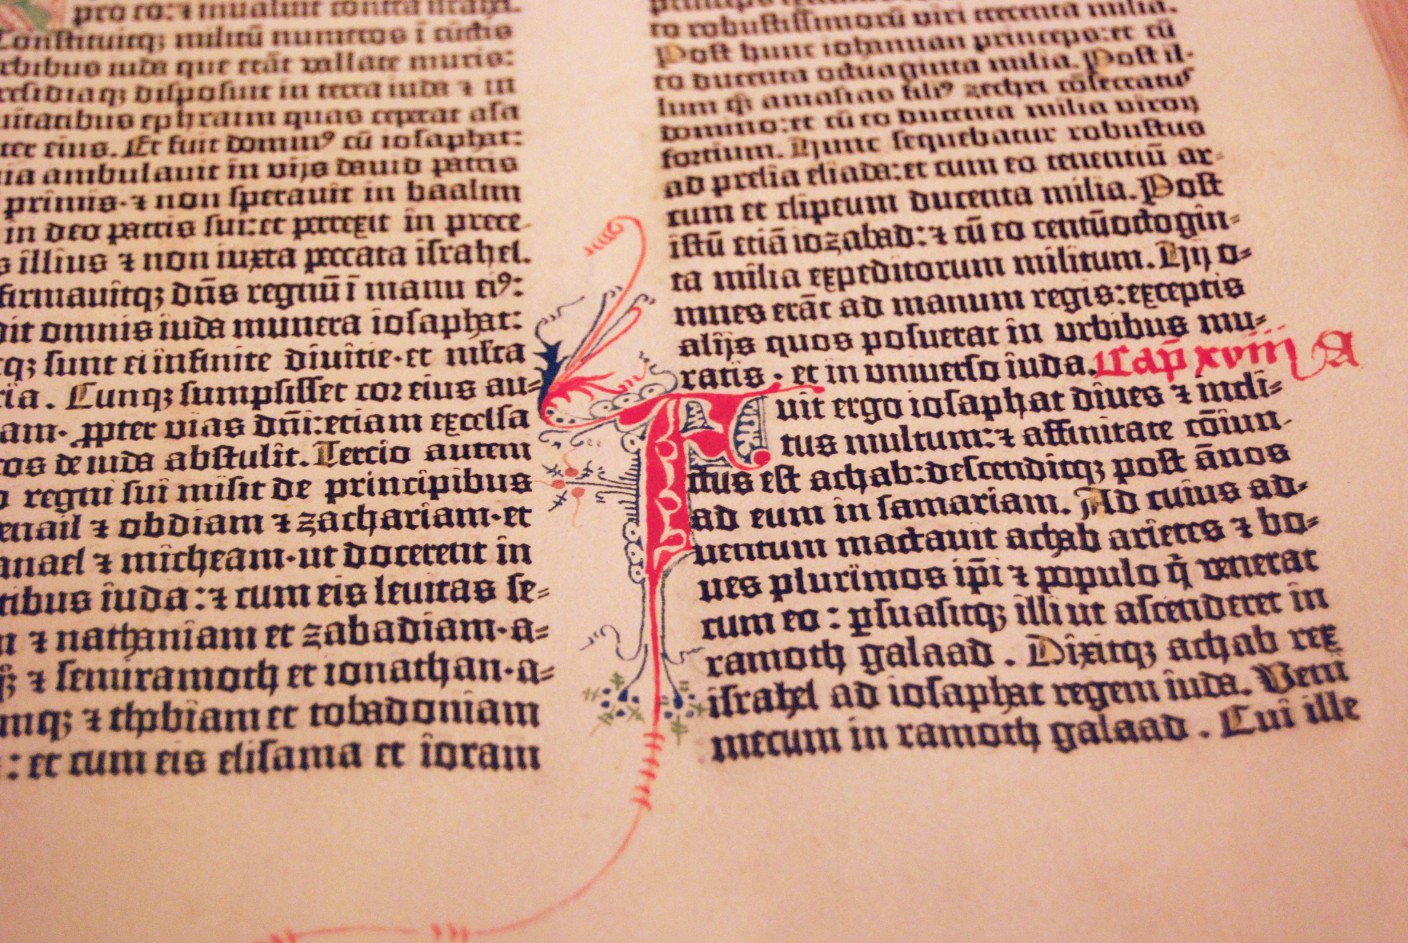 pro eo: ⁊ inualuit contra israhel.
Constituitq; militū numeros ī cūctis
rbibus iuda que erāt vallate muris:
residiaq; disposuit in terra iuda ⁊ in
uitatibus ephraim quas ceperat asa
ter eius. Et fuit domin⁹ cū iosaphat:
ia ambulauit in vijs dauid patris
primis· ⁊ non sperauit in baalim
in deo patris sui: et perrexit in prece-
s illius ⁊ non iuxta peccata israhel.
firmauitq; dn̄s regnū ī manu ei⁹:
dit omnis iuda munera iosaphat:
q; sunt ei infinite diuitie·et m̄lta
ria. Cunq; sumpsisset cor eius au=
am· ꝓpter vias dn̄i: etiam excelsa
cos de iuda abstulit. Tercio autem
o regni sui misit de principibus
enail ⁊ obdiam ⁊ zachariam·et
anael ⁊ micheam·ut docerent in
tibus iuda: ⁊ cum eis leuitas se=
m ⁊ nathaniam et zabadiam·a=
⁊ semiramoth et ionathan·a=
mq; ⁊ thobiam et tobadoniam
: et cum eis elisama et ioram
princeps
to robustissimorū viri trecenta milia.
Post hunc iohannan princeps: et cū
eo ducenta octuaginta milia. Post il-
lum q̄ȝ amasias fili⁹ zechri cōsecratus
domino: et cū eo ducenta milia viroꝝ
fortium. Hunc sequebatur robustus
ad prelia eliada: et cum eo tenentiū ar-
cum et clipeum ducenta milia. Post
istū etiā iozabad: ⁊ cū eo centūoctogin=
ta milia expeditorum militum. Hij o=
mnes erāt ad manum regis: exceptis
alijs quos posuerat in urbibus mu=
ratis · et in vniuerso iuda. Cap̄ xviii A
Fuit ergo iosaphat diues ⁊ incli=
tus multum: ⁊ affinitate cōiun-
ctus est achab: descenditq; post ānos
ad eum in samariam. Ad cuius ad=
uentum mactauit achab arietes ⁊ bo=
ues plurimos ip̄i ⁊ populo q̄ venerat
cum eo : ꝑsuasitq; illi ut ascenderet in
ramoth galaad . Dixitq; achab rex
israhel ad iosaphat regem iuda. Veni
mecum in ramoth galaad . Cui ille